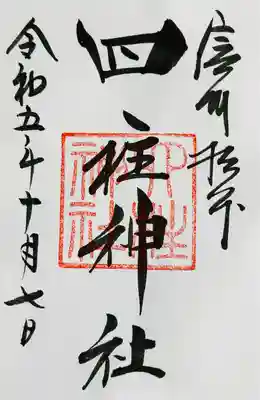 信州松本
四柱神社
令和五年十月七日
四柱神社